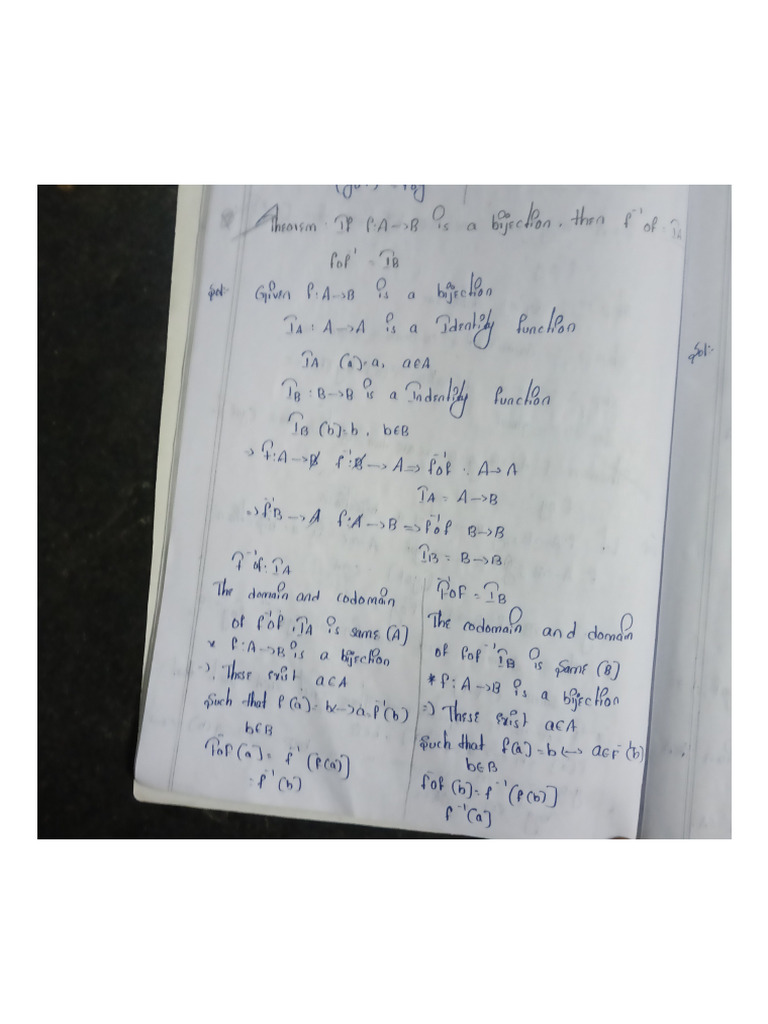 Theorem: If f:A→B is a bijection, then f⁻¹of = I_A
fof⁻¹ = I_B
Sol:- Given f:A→B is a bijection
I_A : A→A is a Identity function
I_A (a)=a, a∈A
I_B : B→B is a Indentity function
I_B (b)=b, b∈B
⇒ f:A→B f⁻¹:B→A ⇒ f⁻¹of : A→A
I_A = A→B
⇒ f⁻¹:B→A f:A→B ⇒ f⁻¹of B→B
I_B = B→B
f⁻¹of: I_A
The domain and codomain
of f⁻¹of, I_A is same (A]
* f:A→B is a bijection
⇒, These exist a∈A
Such that f(a) = b↔a=f⁻¹(b)
b∈B
f⁻¹of(a) = f⁻¹(f(a)]
= f⁻¹(b)
f⁻¹of = I_B
The codomain and domain
of fof⁻¹ I_B is same (B]
* f:A→B is a bijection
⇒) These exist a∈A
Such that f(a) = b↔ a∈f⁻(b)
b∈B
fof(b) = f⁻¹(f(b)]
f⁻¹(a]
Sol:-